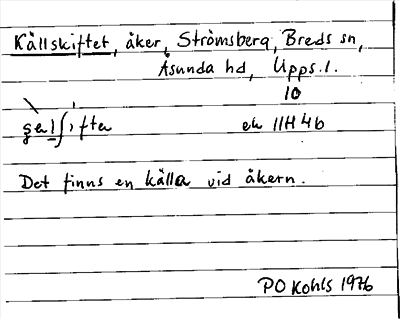 Källskiftet, åker, Strömsberg, Breds sn,
Åsunda hd, Upps. l.
10
ek 11H 4b
Det finns en källa vid åkern.
PO Kohls 1976